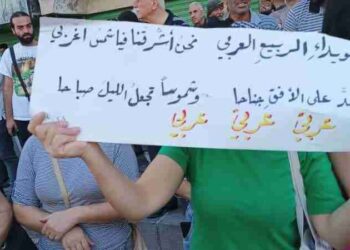 ويداءِ الربيعِ العربي نحن أشرقنا فيا شمس اغربي
على الأفق جناحا وشموساً تجعل الليل صباحا
عربي عربي عربي